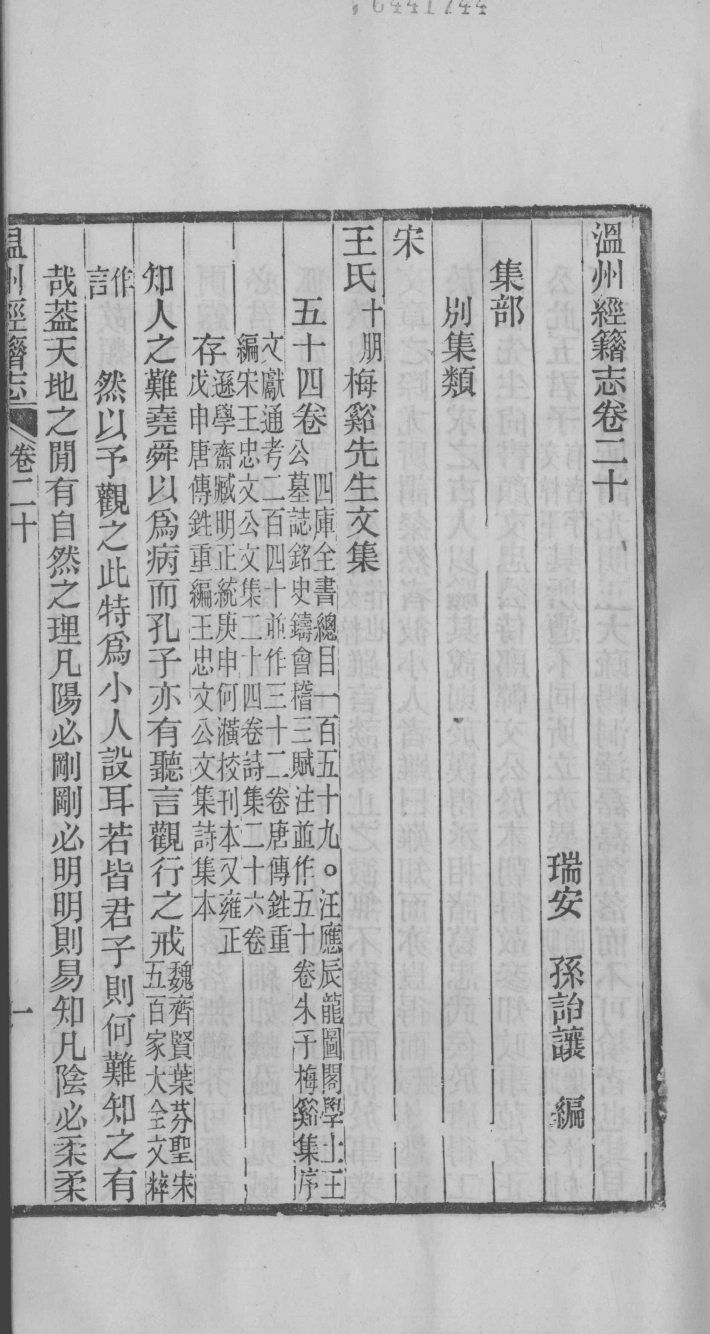 溫州經籍志卷二十
瑞安 孫詒讓 編
集部
別集類
宋
王氏十朋梅谿先生文集
五十四卷
四庫全書總目一百五十九。汪應辰龍圖閣學士王
公墓誌銘史鑄會稽三賦注並作五十卷朱子梅谿集序
文獻通考二百四十並作三十二卷唐傳鉎重
編宋王忠文公文集二十四卷詩集二十六卷
存
遜學齋臧明正統庚申何校刊本又雍正
戊申唐傳鉎重編王忠文公文集詩集本
知人之難堯舜以爲病而孔子亦有聽言觀行之戒
魏齊賢葉芬聖宋
五百家大全文粹
作
言
然以予觀之此特爲小人設耳若皆君子則何難知之有
哉葢天地之閒有自然之理凡陽必剛剛必明明則易知凡陰必柔柔
溫州經籍志 卷二十 一